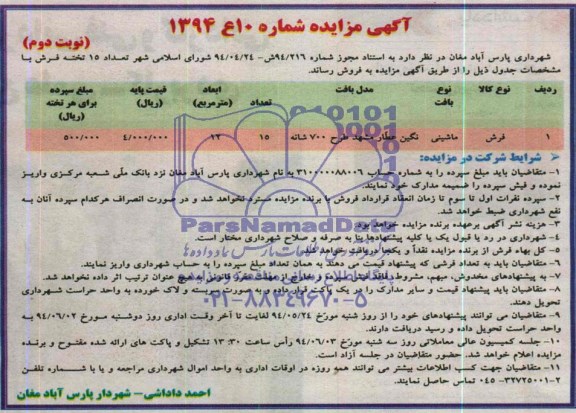 آگهی مزایده شماره ۱۰ع ۱۳۹۴
(نوبت دوم)
شهرداری پارس آباد مغان در نظر دارد به استناد مجوز شماره ۹۴/۲۱۶ش- ۹۴/۰۴/۲۴ شورای اسلامی شهر تعداد ۱۵ تخته فرش با
مشخصات جدول ذیل را از طریق آگهی مزایده به فروش رساند.
ردیف نوع کالا نوع بافت مدل بافت تعداد ابعاد (مترمربع) قیمت پایه (ریال) مبلغ سپرده برای هر تخته (ریال)
۱ فرش ماشینی نگین عطار مشهد طرح ۷۰۰ شانه ۱۵ ۱۲ ۴/۰۰۰/۰۰۰ ۵۰۰/۰۰۰
شرایط شرکت در مزایده:
۱- متقاضیان باید مبلغ سپرده را به شماره حساب ۳۱۰۰۰۰۰۸۸۰۰۶ به نام شهرداری پارس آباد مغان نزد بانک ملّی شعبه مرکزی واریز
نموده و فیش سپرده را ضمیمه مدارک خود نمایند.
۲- سپرده نفرات اول تا سوم تا زمان انعقاد قرارداد فروش با برنده مزایده مسترد نخواهد شد و در صورت انصراف هرکدام سپرده آنان به
نفع شهرداری ضبط خواهد شد.
۳- هزینه نشر آگهی برعهده برنده مزایده خواهد بود.
۴- شهرداری در رد یا قبول یک یا کلیه پیشنهادها بنا به صرفه و صلاح شهرداری مختار است.
۵- کل بهاء فرش از برنده مزایده نقداً و یکجا دریافت خواهد شد.
۶- متقاضیان باید به تعداد فرشی که پیشنهاد قیمت می دهند به همان تعداد مبلغ سپرده را به حساب شهرداری واریز نمایند.
۷- به پیشنهادهای مخدوش، مبهم، مشروط، فاقد سپرده و خارج از مهلت مقرر قانونی به هیچ عنوان ترتیب اثر داده نخواهد شد.
۸- متقاضیان باید پیشنهاد قیمت و سایر مدارک را در یک پاکت قرار داده و به صورت بسته و لاک خورده به واحد حراست شهرداری
تحویل دهند.
۹- متقاضیان می توانند پیشنهادهای خود را از روز شنبه مورّخ ۹۴/۰۵/۲۴ لغایت تا آخر وقت اداری روز دوشنبه مورخ ۹۴/۰۶/۰۲ به
واحد حراست تحویل داده و رسید دریافت دارند.
۱۰- جلسه کمیسیون عالی معاملاتی روز سه شنبه مورّخ ۹۴/۰۶/۰۳ رأس ساعت ۱۳:۳۰ تشکیل و پاکت های ارائه شده مفتوح و برنده
مزایده اعلام خواهد شد. حضور متقاضیان در جلسه آزاد است.
۱۱- متقاضیان جهت کسب اطلاعات بیشتر می توانند همه روزه در اوقات اداری به واحد اموال شهرداری مراجعه و یا با شماره تلفن
۲-۳۲۷۲۵۰۰۱ ۰۴۵ تماس حاصل نمایند.
احمد داداشی- شهردار پارس آباد مغان
ParsNamadData
۰۲۱-۸۸۳۴۹۶۷۰-۵